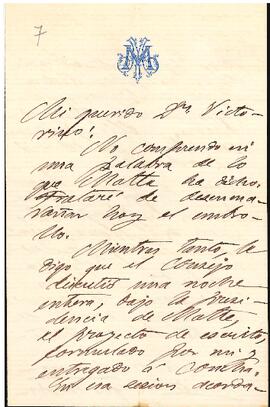 7
Mi querido Dn Victo-
rino:
No comprendo ni
una palabra de lo
que Matta ha dicho.
Trataré de desenma-
rañar hoy el embro-
llo.
Mientras tanto le
digo que el Consejo
discutió una noche
entera, bajo la presi-
dencia de Matta,
el proyecto de escrito,
formulado por mi y
entregado á Concha.
En esa sesion acorda-